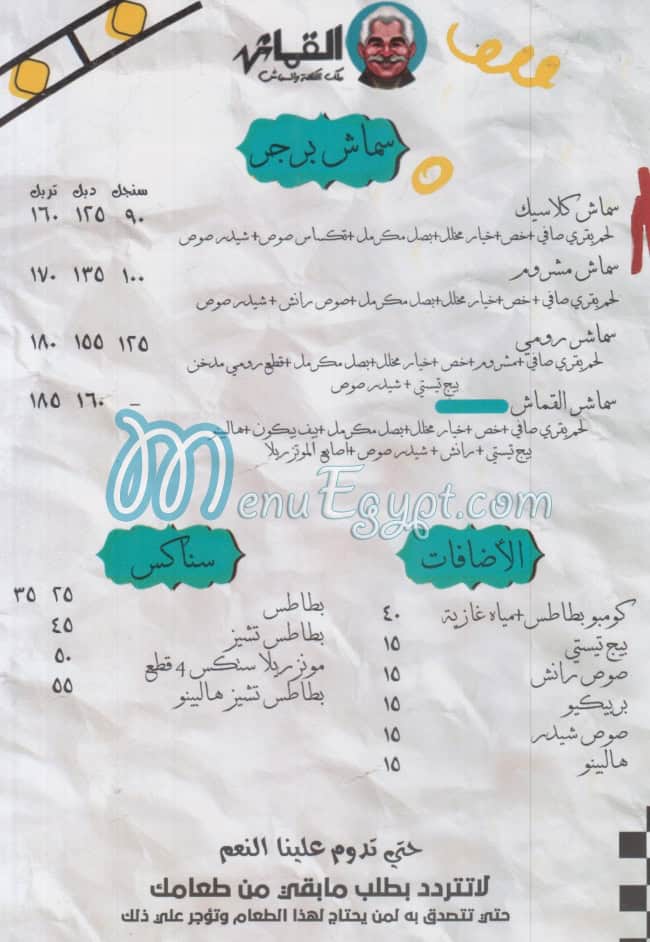 القماش
ملك الكفتة والسماش
سماش برجر
سنجل دبل تربل
سماش كلاسيك ٩٠ ١٢٥ ١٦٠
لحم بقري صافي+خص+خيار مخلل+بصل مكرمل+تكساس صوص+شيدر صوص
سماش مشروم ١٠٠ ١٣٥ ١٧٠
لحم بقري صافي+خص+خيار مخلل+بصل مكرمل+صوص رانش+شيدر صوص
سماش رومي ١٢٥ ١٥٥ ١٨٠
لحم بقري صافي+مشروم+خص+خيار مخلل+بصل مكرمل+قطع رومي مدخن
بيج تيستي+شيدر صوص
سماش القماش – ١٦٠ ١٨٥
لحم بقري صافي+خص+خيار مخلل+بصل مكرمل+بيف بيكون+هالبينو
بيج تيستي+رانش+شيدر صوص+أصابع الموتزريلا
MenuEgypt.com
الأضافات
كومبو بطاطس+مياه غازية ٤٠
بيج تيستي ١٥
صوص رانش ١٥
بربيكيو ١٥
صوص شيدر ١٥
هالبينو ١٥
سناكس
بطاطس ٢٥ ٣٥
بطاطس تشيز ٤٥
موتزريلا ستكس 4 قطع ٥٠
بطاطس تشيز هالبينو ٥٥
حتي تدوم علينا النعم
لاتتردد بطلب مابقي من طعامك
حتي تتصدق به لمن يحتاج لهذا الطعام وتؤجر علي ذلك